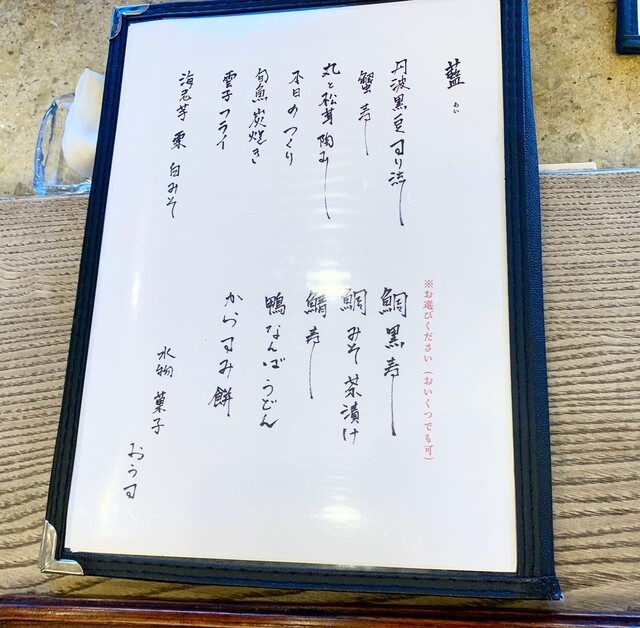 藍
あい
丹波黒豆すり流し
蟹寿し
丸と松茸陶みし
本日のつくり
旬魚炭焼き
雲子フライ
海老芋 栗 白みそ
※お選びください（おいくつでも可）
鯛黒寿し
鯛みそ茶漬け
鯖寿し
鴨なんばうどん
からすみ餅
水物 菓子
おうす